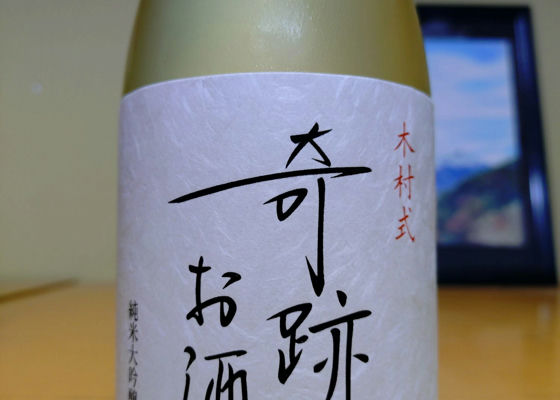 木村式
奇跡
お酒
純米大吟醸